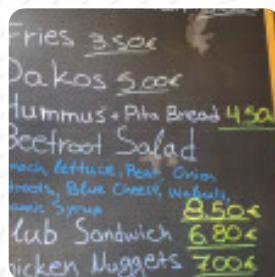 Fries 3.50€
Dakos 5.00€
Hummus + Pita Bread 4.50
Beetroot Salad
Pear, Onion
Blue Cheese, Walnuts,
Syrup
8.50€
lub Sandwich 6.80€
icken Nuggets 7.00€